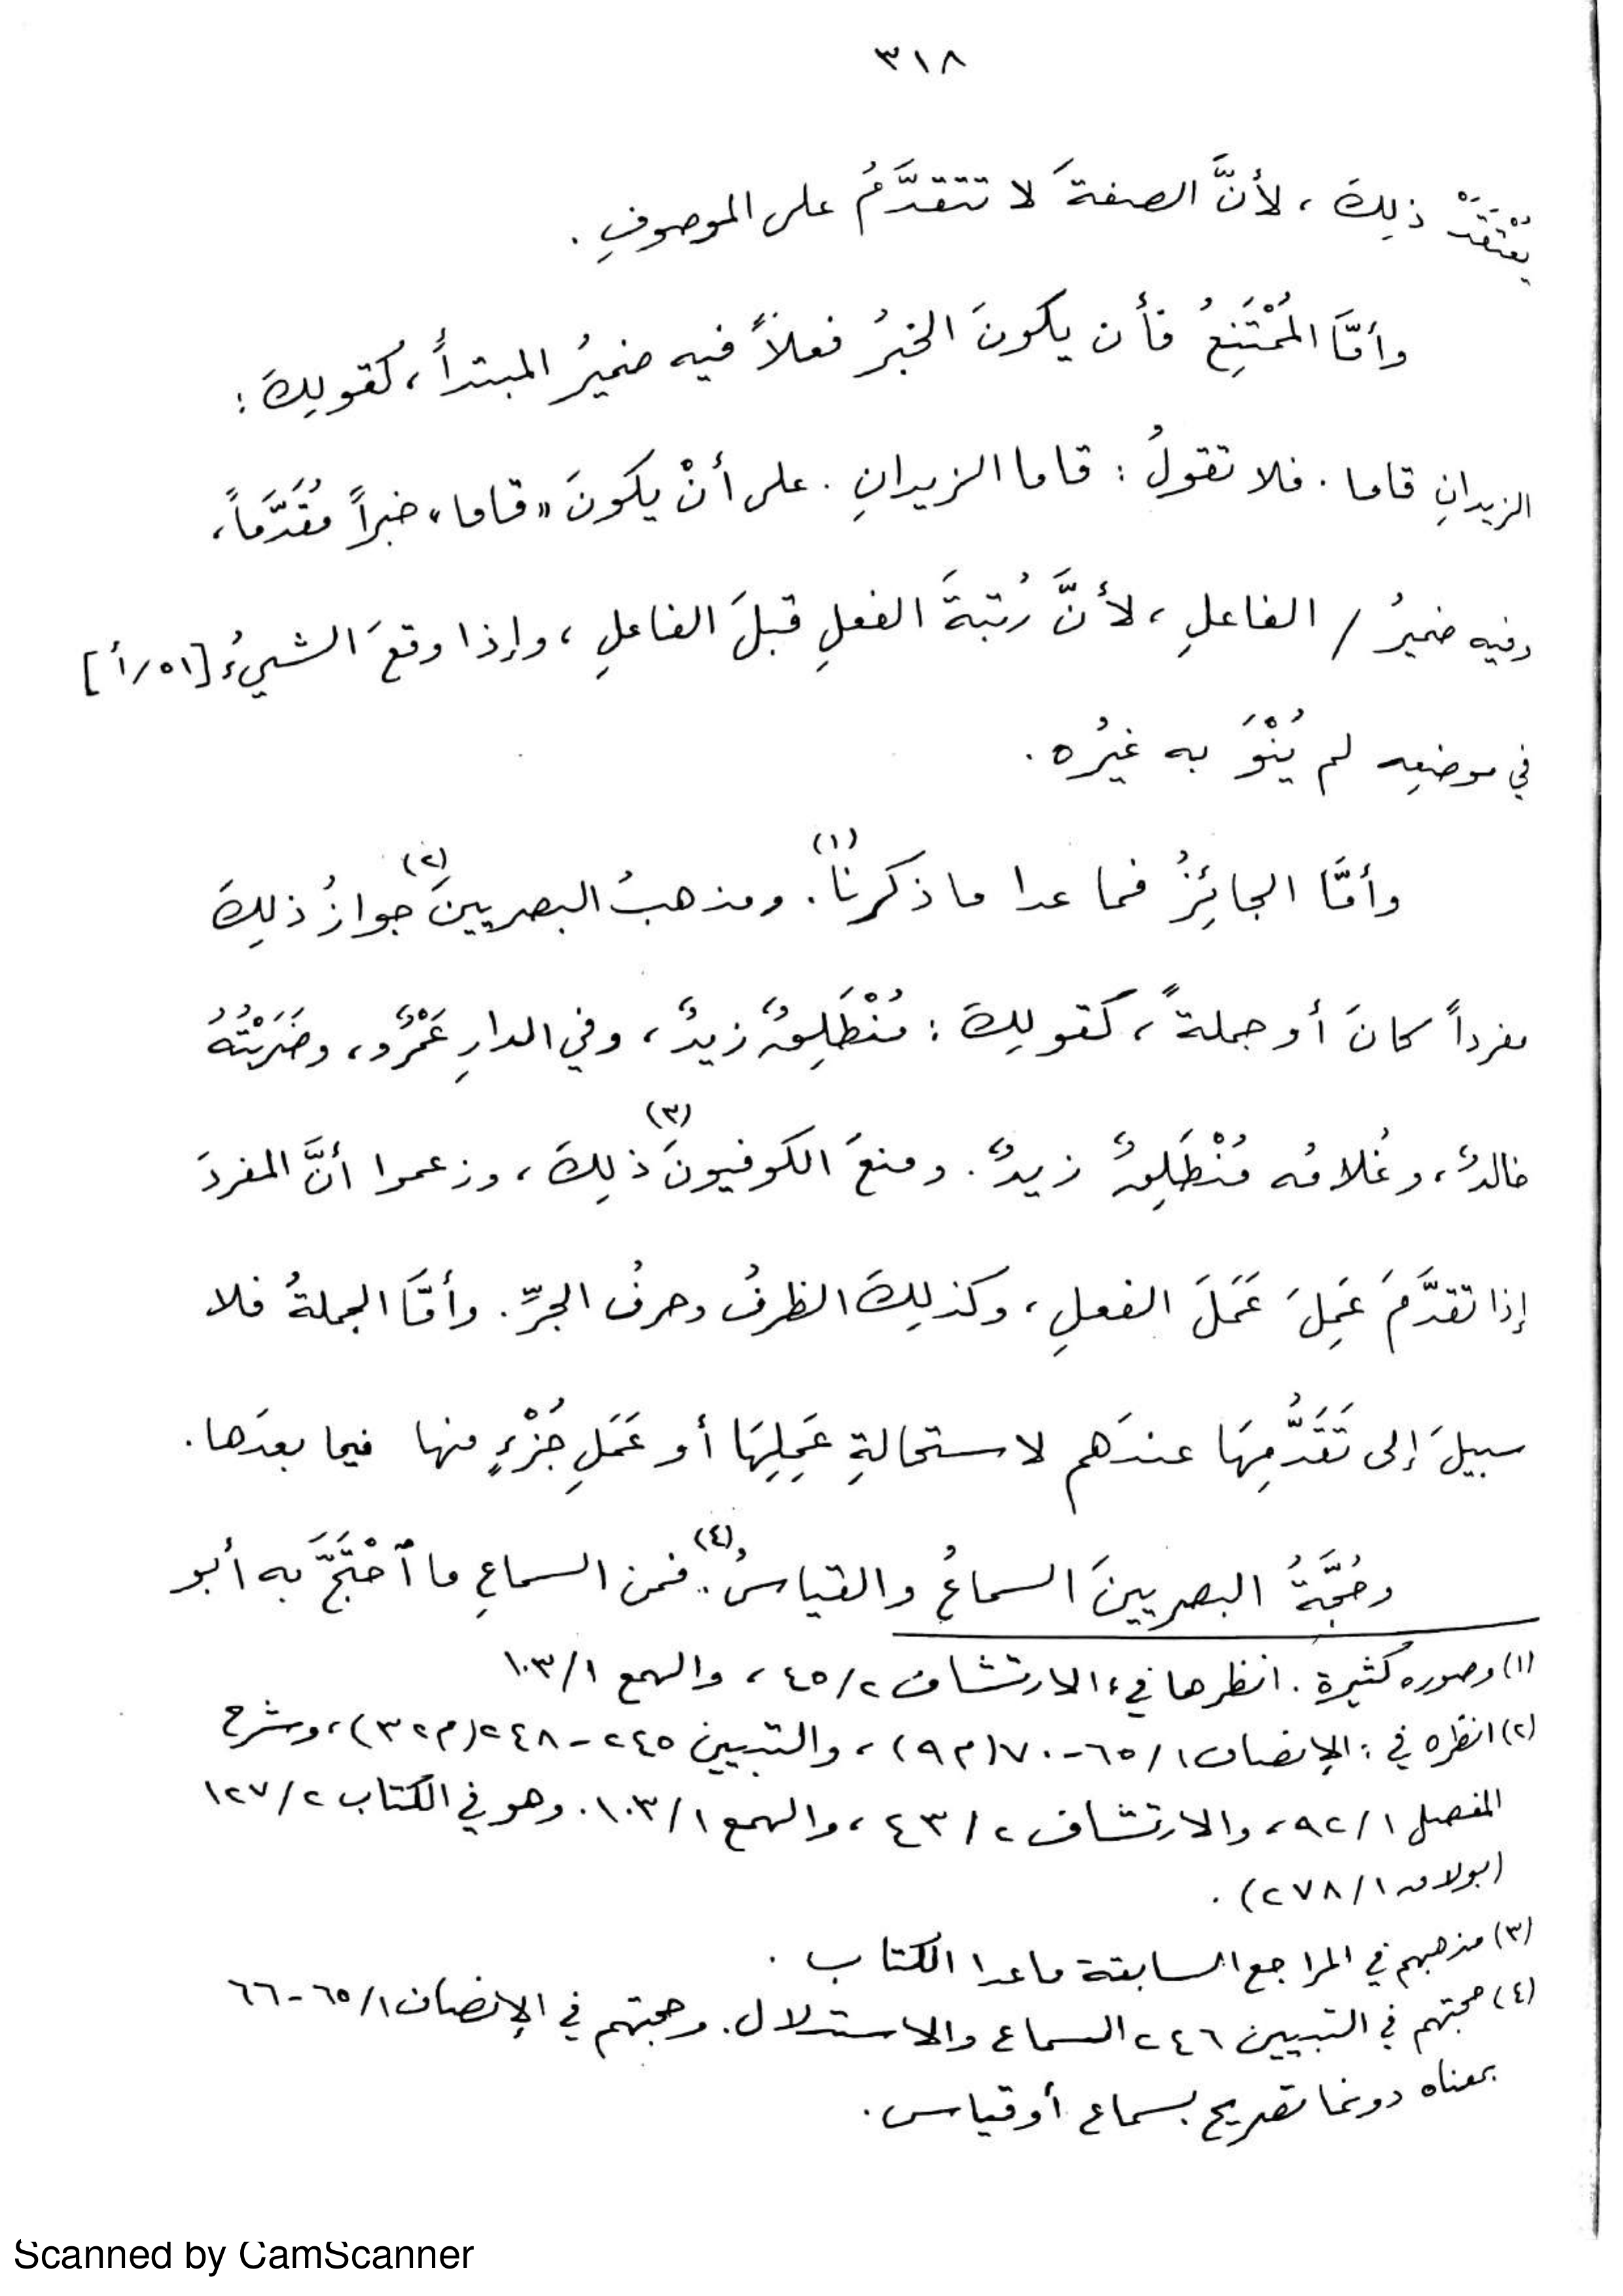 ٣١٨
يُعْتَقَدْ ذلِكَ ، لأنَّ الصفةَ لا تتقدَّمُ على الموصوفِ .
وأمَّا المُمْتَنِعُ فأن يكونَ الخبرُ فعلاً فيه ضميرُ المبتدأ ، كقولِكَ :
الزيدانِ قاما . فلا تقولُ : قاما الزيدانِ . على أنْ يكونَ « قاما » خبراً مُقَدَّماً ،
وفيه ضميرُ / الفاعلِ ، لأنَّ رُتبةَ الفعلِ قبلَ الفاعلِ ، وإذا وقعَ الشيءُ [٥١/أ]
في موضعِه لم يُنْوَ به غيرُه .
وأمَّا الجائِزُ فما عدا ما ذكرنا(١) . ومذهبُ البصريينَ(٢) جوازُ ذلِكَ
مفرداً كانَ أو جملةً ، كقولِكَ : مُنْطَلِقٌ زيدٌ ، وفي الدارِ عَمْرٌو ، وضَرَبْتُهُ
خالدٌ ، وغُلامُه مُنْطَلِقٌ زيدٌ . ومنعَ الكوفيونَ(٣) ذلِكَ ، وزعموا أنَّ المفردَ
إذا تقدَّمَ عَمِلَ عَمَلَ الفعلِ ، وكذلِكَ الظرفُ وحرفُ الجرِّ . وأمَّا الجملةُ فلا
سبيلَ إلى تَقَدُّمِهَا عندَهم لاستحالةِ عَمِلِهَا أو عَمَلِ جُزْءٍ منها فيما بعدَها .
وحُجَّةُ البصريينَ السماعُ والقياسُ(٤) . فمن السماعِ ما ٱحْتَجَّ به أبو
(١) وصوره كثيرة . انظرها في الارتشاف ٢/٤٥ ، والهمع ١/١٠٣
(٢) انظره في : الإنصاف ١/٦٥-٧٠ (م٩) ، والتبيين ٢٤٥-٢٤٨ (م٣٢) ، وشرح
المفصل ١/٩٢ ، والارتشاف ٢/٤٣ ، والهمع ١/١٠٣ . وهو في الكتاب ٢/١٢٧
(بولاق ١/٢٧٨) .
(٣) مذهبهم في المراجع السابقة ماعدا الكتاب .
(٤) حجتهم في التبيين ٢٤٦ السماع والاستدلال . وحجتهم في الإنصاف ١/٦٥-٦٦
بمعناه دونما تصريح بسماع أو قياس .
Scanned by CamScanner